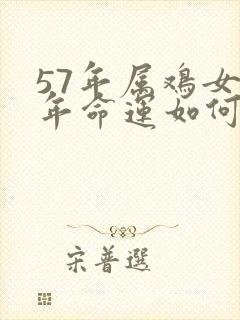 57年属鸡女
年命运如何
宋普選